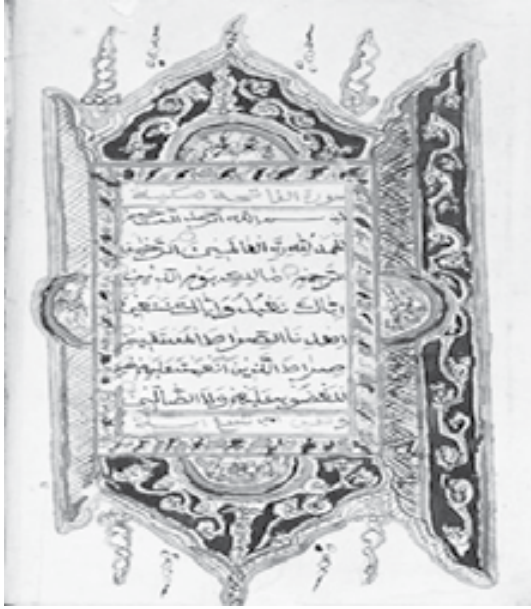 سورة الفاتحة مكية
بسم الله الرحمن الرحيم
الحمد لله رب العالمين الرحمن
الرحيم مالك يوم الدين
إياك نعبد وإياك نستعين
اهدنا الصراط المستقيم
صراط الذين أنعمت عليهم غير
المغضوب عليهم ولا الضالين